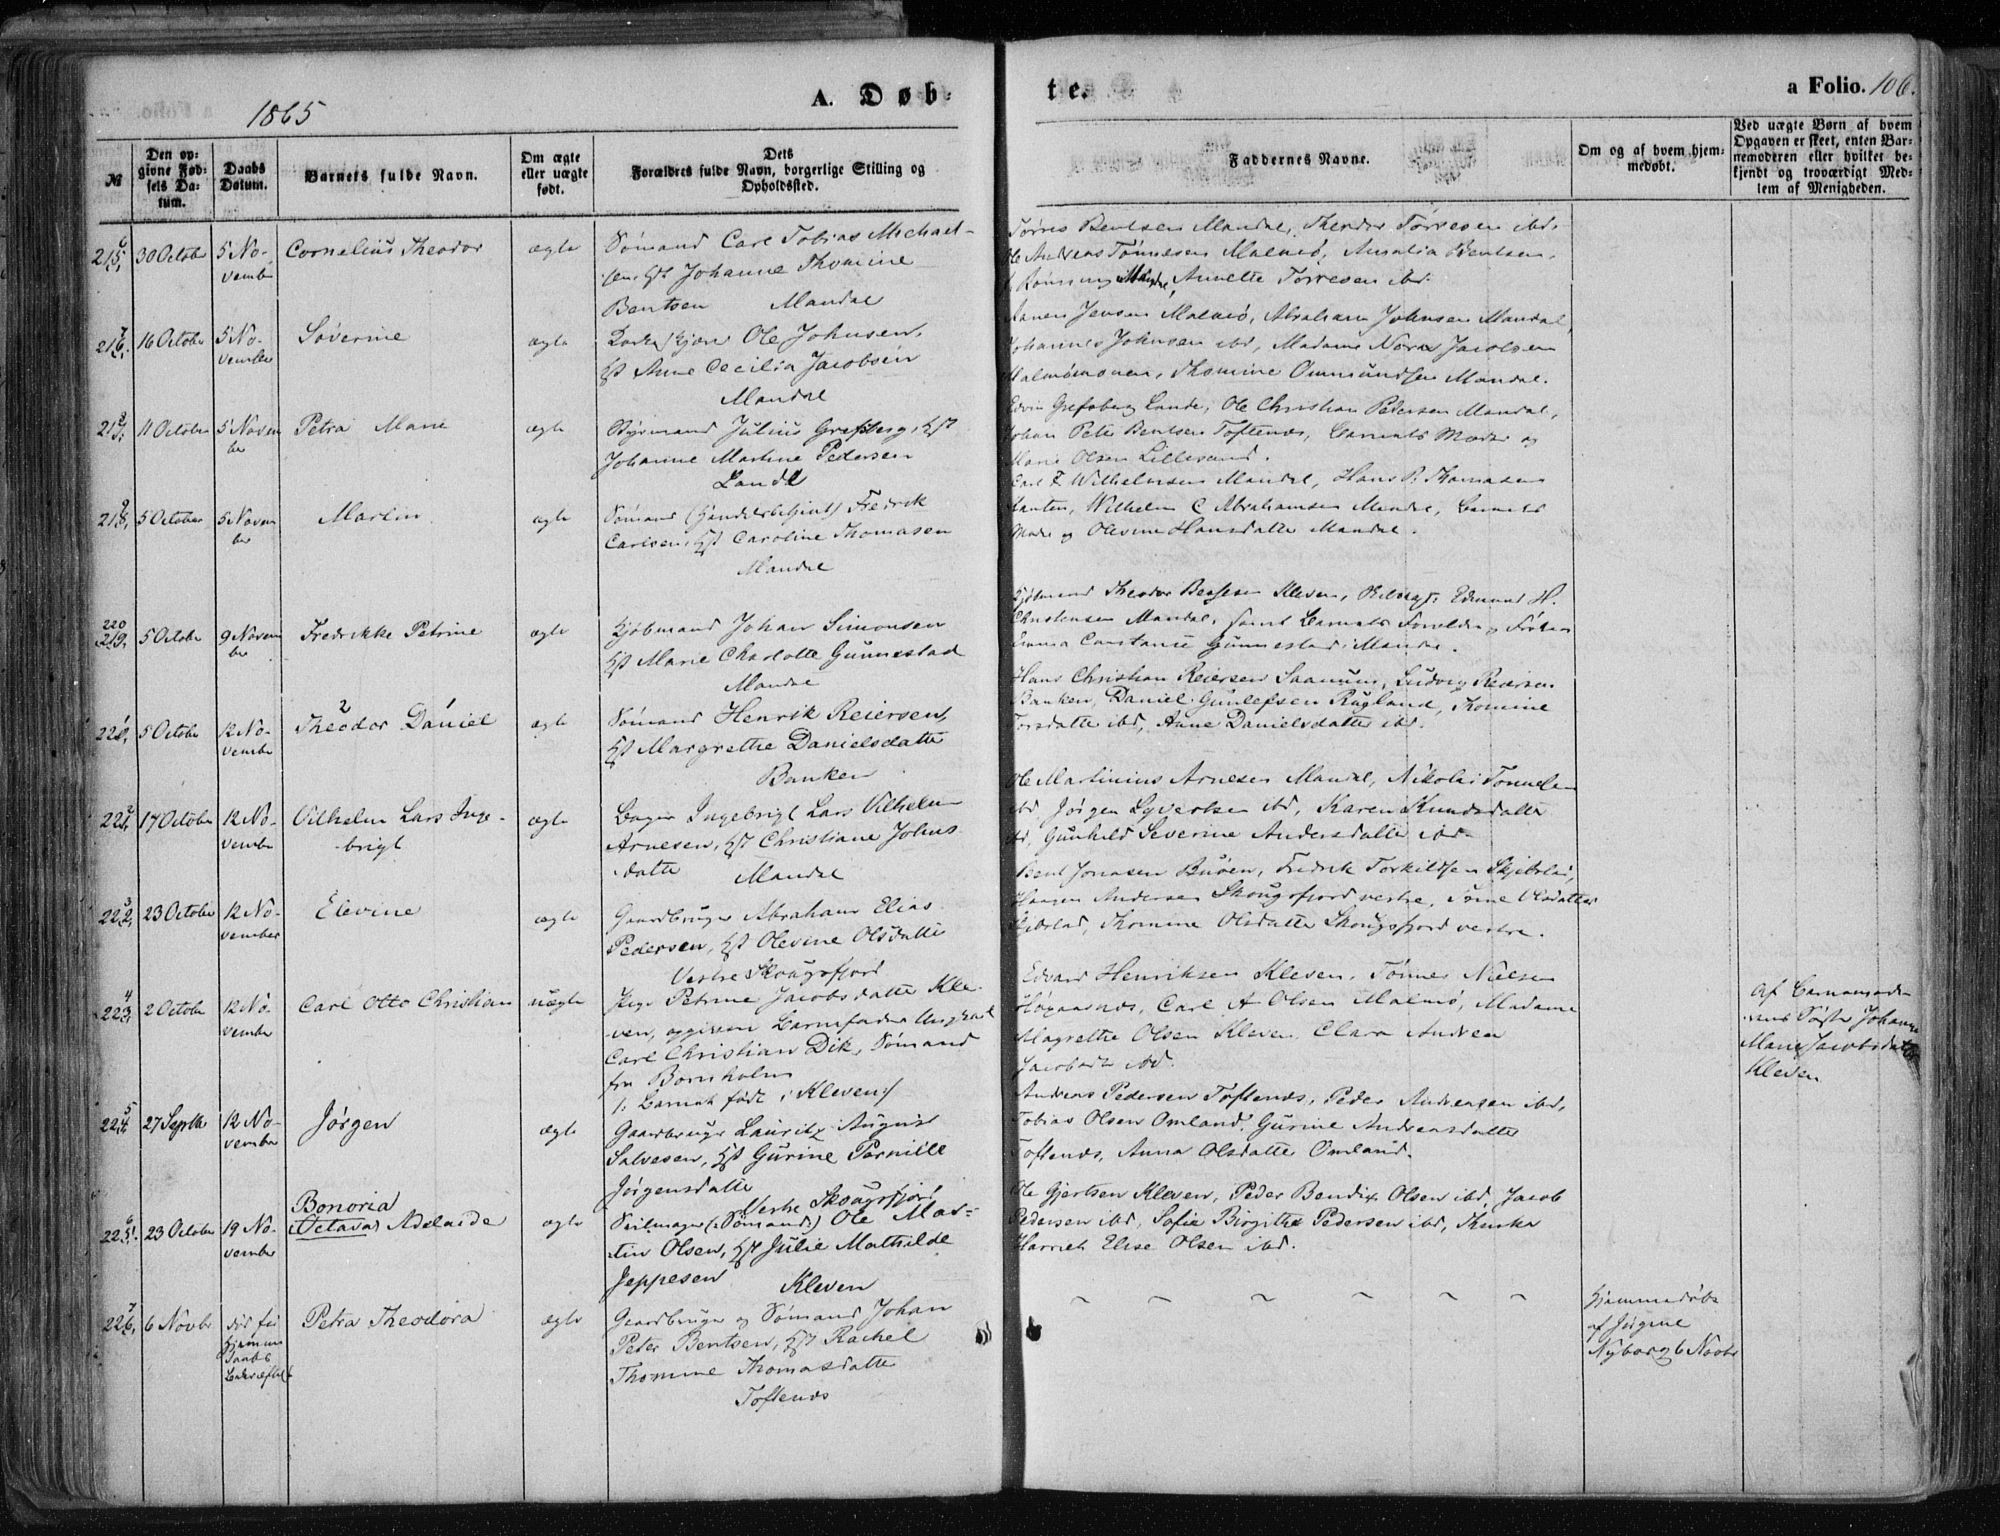 1865
A. Døb-
te.
a Folio. 106.
№
Den op-
givne Fød-
sels Da-
tum.
Daabs
Datum.
Barnets fulde Navn.
Om ægte
eller uægte
født.
Dets
Forældres fulde Navn, borgerlige Stilling og
Opholdssted.
Faddernes Navne.
Om og af hvem hjem-
medøbt.
Ved uægte Børn af hvem
Opgaven er skeet, enten Bar-
nemoderen eller hvilket be-
kjendt og troværdigt Med-
lem af Menigheden.
6
215.
30 October
5 No-
vember
Cornelius Theodor
ægte
Sømand Carl Tobias Michael-
sen, Hst Johanne Thomine
Bentsen Mandal
Tørres Bentsen Mandal, Theodor Tørresen ibd.
Ole Andreas Tønnesen Malmø, Amalia Bentsen
Mandal, Annette Tørresen ibd.
7
216.
16 October
5 No-
vember
Søverine
ægte
Ole Johnsen,
Hst Anne Cecilia Jacobsen
Mandal
Jensen Malmø, Abraham Johnsen Mandal,
Johannes Johnsen ibd, Madame Jacobsen
Malmømonen, Thomine Ommundsen Mandal.
8
217.
11 October
5 Novem
ber
Petra Marie
ægte
Styrmand Julius Grefsberg, Hst
Johanne Martine Pedersen
Lande
Edvin Grefsberg Lande, Ole Christian Pedersen Mandal,
Johan Peter Bentsen Toftenes, Barnets Moder og
Marie Olsen Lillesand.
9
218.
5 October
5 Novem
ber
Martin
ægte
Sømand (Handelsbetjent) Fredrik
Carlsen, Hst Caroline Thomasen
Mandal
Carl F Wilhelmsen Mandal, Hans P. Thomasen
Wilhelm C Abrahamsen Mandal, Barnets
Moder og Olevine Hansdatte Mandal.
220
219.
5 October
9 Novem
ber
Fredrikke Petrine
ægte
Kjøbmand Johan Simonsen
Hst Marie Charlotte Gunnestad
Mandal
Kjøbmand Theodor Kleven, Edmund H.
Christensen Mandal, samt Barnets Forældre og Frøken
Emma Constance Gunnestad i Mandal.
1
220.
5 October
12 No-
vember
2 1
Theodor Daniel
ægte
Sømand Henrik Reiersen,
Hst Margrethe Danielsdatte
Banken
Hans Christian Reiersen Saanum, Ludvig Reiersen
Banken, Daniel Gunlefsen Rugland, Thomine
Torsdatte ibd, Anne Danielsdatte ibd.
2
221.
17 October
12 No-
vember
Vilhelm Lars Inge-
brigt
ægte
Bager Ingebrigt Lars Vilhelm
Arnesen, Hst Christiane Johns
datte Mandal
Ole Martinius Arnesen Mandal, Nikolai Tønnesen
ibd, Jørgen Syvertsen ibd, Karen Knudsdatte
ibd, Gunhild Severine Andersdatte ibd.
3
222.
23 October
12 No-
vember
Elevine
ægte
Gaardbruger Abraham Elias
Pedersen, Hst Olevine Olsdatte
Vestre Skougsfjord
Bent Jonasen Buøen, Fredrik Torkildsen Skjebstad,
Andersen Skougsfjord vestre, Olsdatter
Skjebstad, Thomine Olsdatte Skougsfjord vestre.
4
223.
2 October
12 No-
vember
Carl Otto Christian
uægte
Pige Petrine Jacobsdatte Kle-
ven, opgiven Barnefader Ungkarl
Carl Christian Dik, Sømand
fra Bornholm
/: Barnet født i Kleven :/
Edvard Henriksen Kleven, Tønnes Nielsen
Høgaasnæs, Carl A Olsen Malmø, Madame
Magrethe Olsen Kleven, Clara Andrea
Jacobsdt ibd.
Af Barnemode-
rens Søster Johanne
Marie Jacobsdatte
Kleven
5
224.
27 Septbr
12 No-
vember
Jørgen
ægte
Gaardbruger Lauritz August
Salvesen, Hst Gurine Pernille
Jørgensdatte
Vestre Skougsfjord
Andreas Pedersen Toftenes, Peder Andreasen ibd,
Tobias Olsen Omland, Gurine Andreasdatte
Toftenes, Anna Olsdatte Omland.
6
225.
23 October
19 No-
vember
Bonoria
(Octava) Adelaide
ægte
Seilmager (Sømand) Ole Mar-
tin Olsen, Hst Julie Mathilde
Jeppesen Kleven
Ole Gjertsen Kleven, Peder Bendix Olsen ibd, Jacob
Pedersen ibd, Sofie Birgithe Pedersen ibd,
Harriet Elise Olsen ibd.
7
226.
6 Novbr
død før
Hjemme
Daabs
Bekræftels
Petra Theodora
ægte
Gaardbruger og Sømand Johan
Peter Bentsen, Hst Rachel
Thomine Thomasdatte
Toftenes
Hjemmedøbt
af Jørgine
Nyborg 6 Novbr